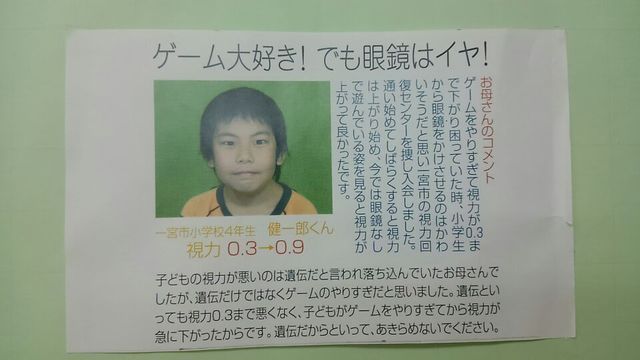 ゲーム大好き!でも眼鏡はイヤ!
お母さんのコメント
ゲームをやりすぎて視力が0.3ま
で下がり困っていた時、小学生
から眼鏡をかけさせるのはかわ
いそうだと思い一宮市の視力回
復センターを捜し入会しました。
通い始めてしばらくすると視力
は上がり始め、今では眼鏡なし
で遊んでいる姿を見ると視力が
上がって良かったです。
一宮市小学校4年生 健一郎くん
視力 0.3→0.9
子どもの視力が悪いのは遺伝だと言われ落ち込んでいたお母さんで
したが、遺伝だけではなくゲームのやりすぎだと思いました。遺伝とい
っても視力0.3まで悪くなく、子どもがゲームをやりすぎてから視力が
急に下がったからです。遺伝だからといって、あきらめないでください。